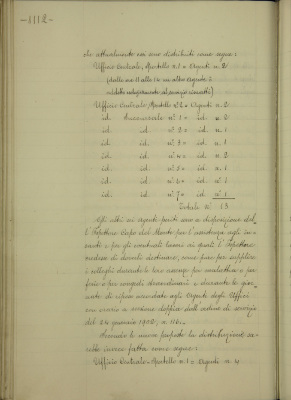 - 1112 -
che attualmente essi sono distribuiti come segue:
Ufficio Centrale, Sportello n. 1 = Agenti n. 2
(dalle ore 11 alle 14 un altro agente è
adibito al servizio)
Ufficio Centrale, Sportello n° 2 = Agenti n. 2
id. Succursale n° 1 = id. n. 2
id. id. n° 2 = id. n. 1
id. id. n° 3 = id. n. 1
id. id. n° 4 = id. n. 2
id. id. n° 5 = id. n. 1
id. id. n° 6 = id. n. 1
id. id. n° 7 = id. n° 1
Totale N° 13
Gli altri sei agenti posti sono a disposizione del-
l'Ispettore Capo del Monte per l'assistenza agli in-
canti e per gli eventuali lavori ai quali l'Ispettore
medesimo li destini, come pure per supplire
i colleghi durante le loro assenze per malattia o per
ferie o per congedi straordinari e durante le gior-
nate di riposo accordate agli Agenti degli Uffici
con orario a sezione doppia dall'ordine di servizio
del 24 gennaio 1902, n. 116.
Secondo le nuove proposte la distribuzione sa-
rebbe invece fatta come segue:
Ufficio Centrale - Sportello n. 1 = Agenti n. 4